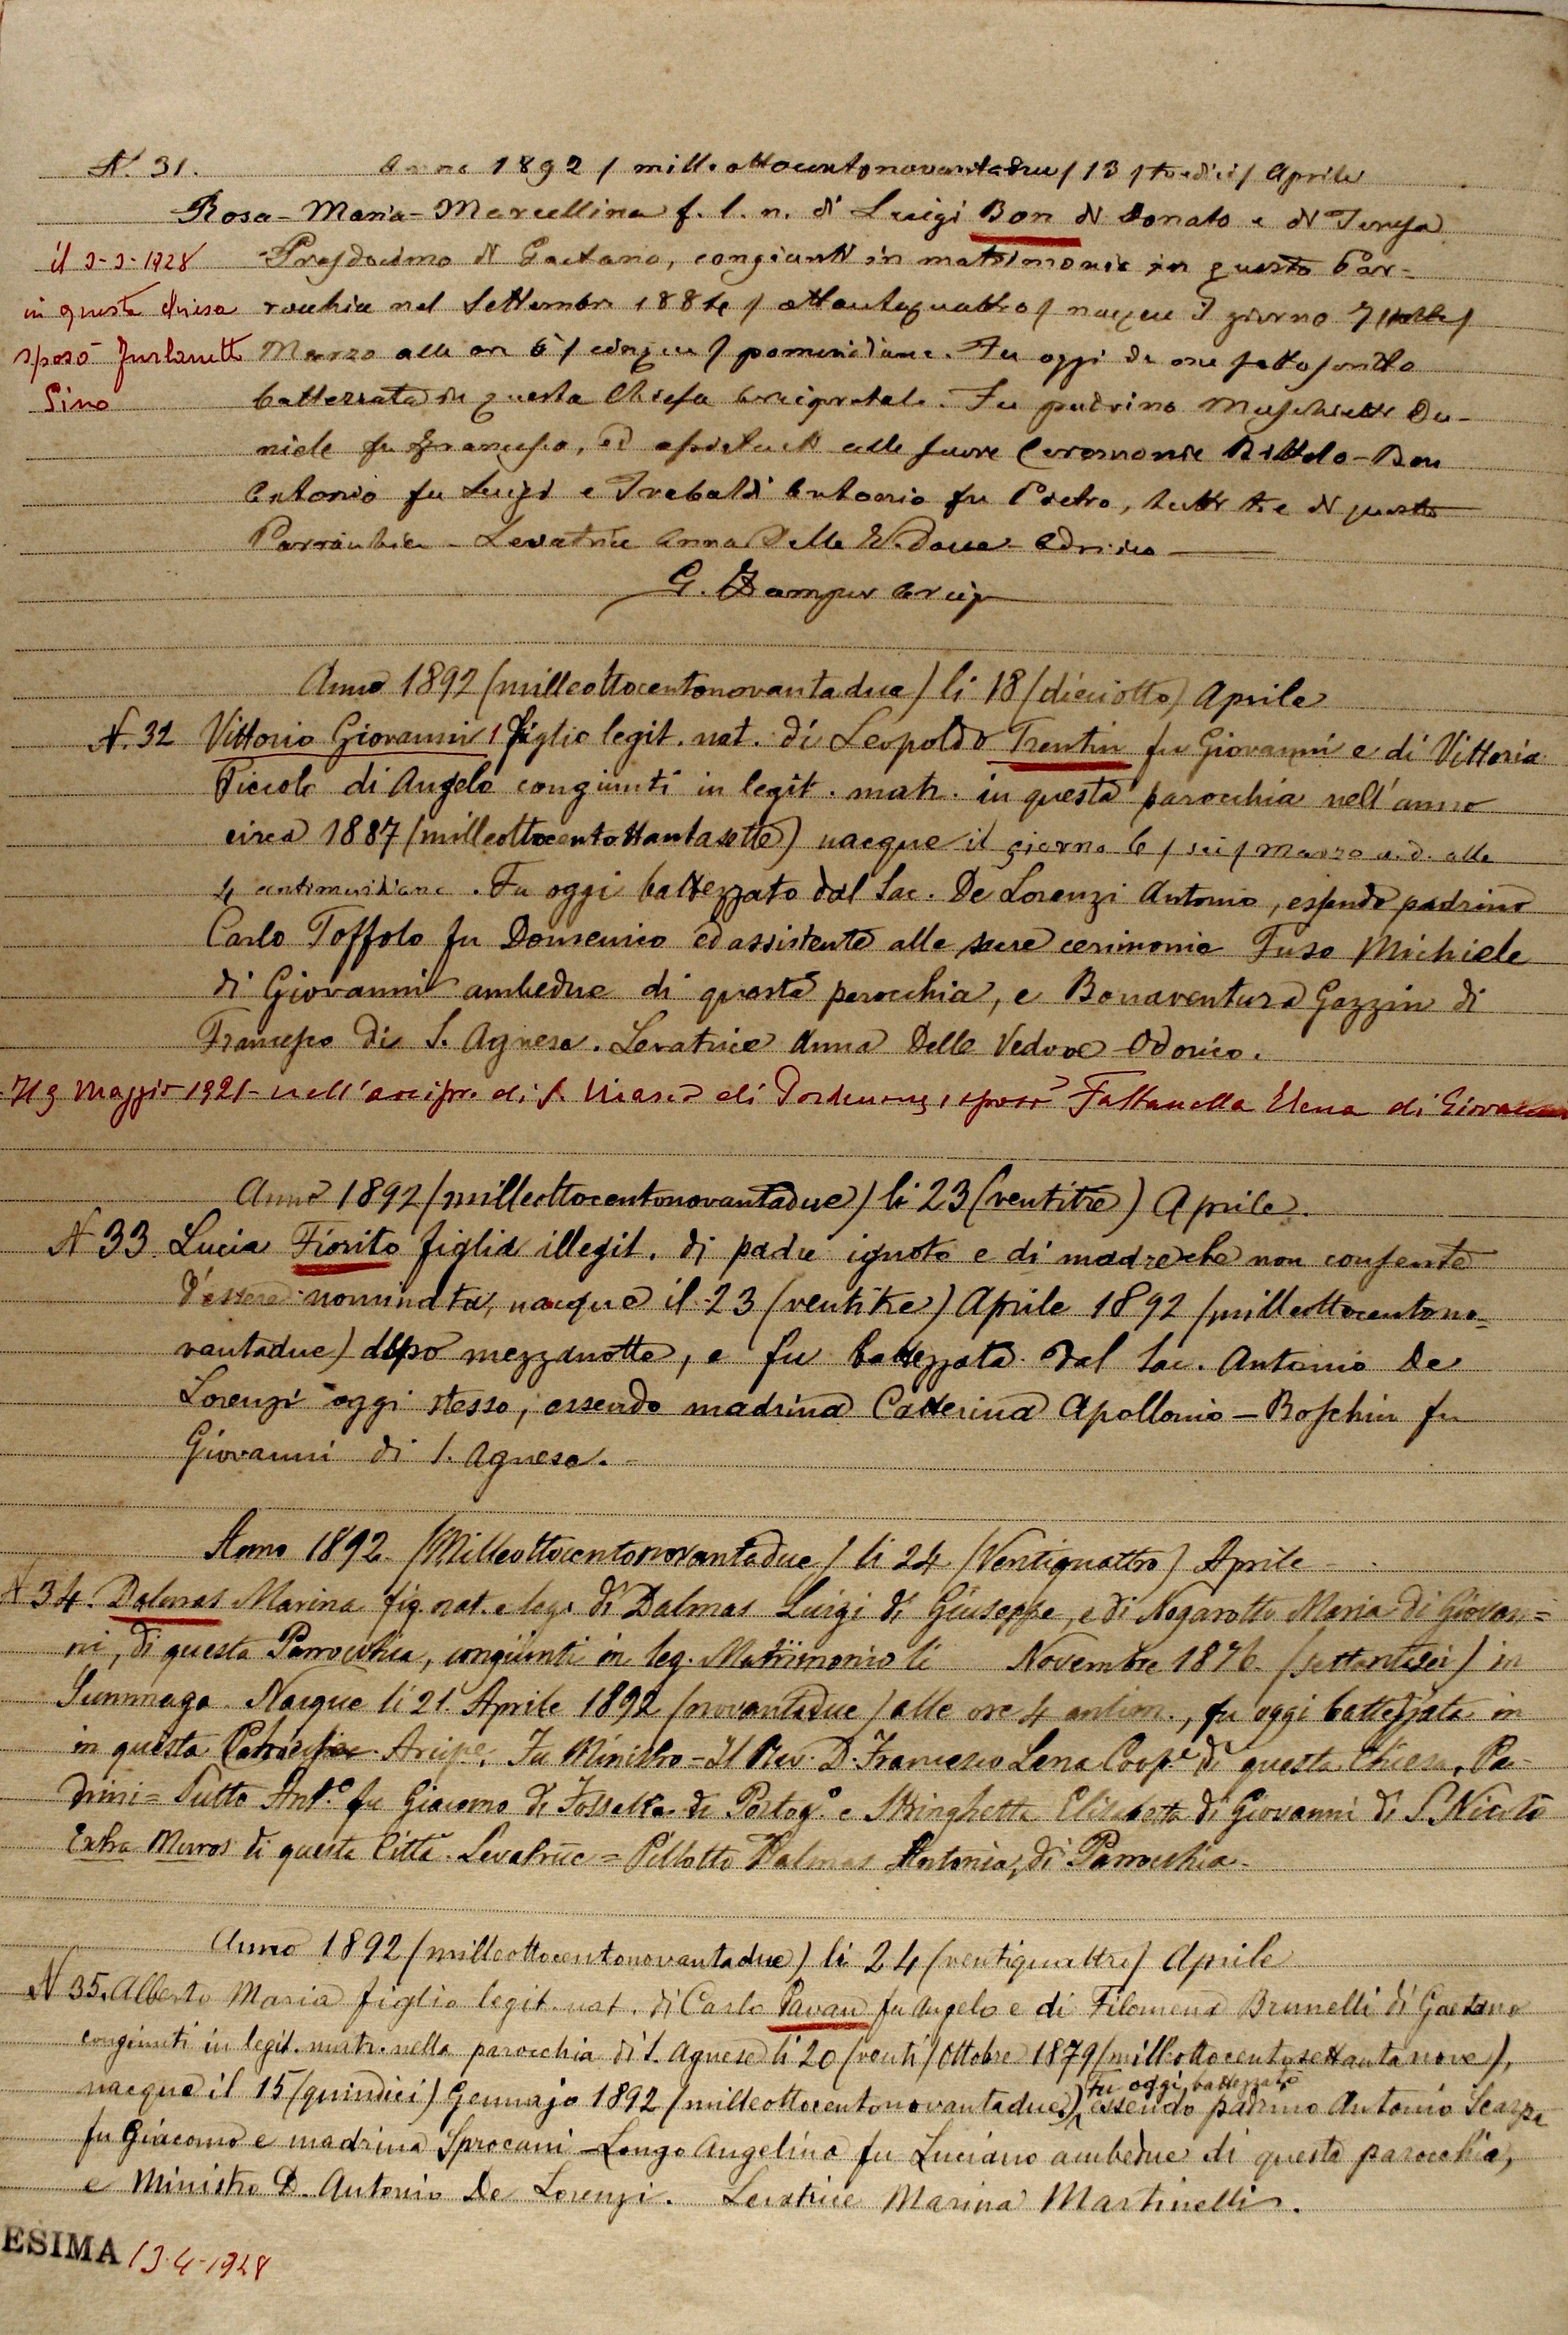 N. 31. Anno 1892 / milleottocentonovantadue / 13 / tredici / Aprile
Rosa - Maria - Marcellina f. l. n. di Luigi Bon di Donato e di Teresa
il 3-3-1928
Prosdocimo di Gaetano, congiunti in matrimonio in questa Par-
in questa chiesa
rocchia nel Settembre 1884 / ottantaquattro / nacque il giorno 7 /sette/
sposò Furlanetto
Marzo alle ore 5 / cinque / pomeridiane. Fu oggi da me sottoscritto
Gino
battezzata in questa Chiesa Arcipretale. Fu padrino Muschietti Da-
niele fu Francesco, ed assistenti alle sacre Ceremonie - Bon
Antonio fu Luigi e Trebaldi Antonio fu Pietro, tutti tre di questa
Parrocchia - Levatrice Anna Delle Vedove - Odorico
G. Zamper Arcip
Anno 1892 (milleottocentonovantadue) li 18 (dieciotto) Aprile
N. 32 Vittorio Giovanni figlio legit. nat. di Leopoldo Trentin fu Giovanni e di Vittoria
Piccolo di Angelo congiunti in legit. matr. in questa parocchia nell'anno
circa 1887 (milleottocentottantasette) nacque il giorno 6 / sei / marzo a.d. alle
4 antimeridiane. Fu oggi battezzato dal Sac. De Lorenzi Antonio, essendo padrino
Carlo Toffolo fu Domenico ed assistente alle sacre cerimonie Fuso Michiele
di Giovanni ambedue di questa parocchia, e Bonaventura Gazzin di
Francesco di S. Agnese. Levatrice Anna Delle Vedove Odorico.
Il 9 Maggio 1921 - nell'arcipr. di S. Marco di Pordenone, sposò Fattanella Elena di Giovanni
Anno 1892 (milleottocentonovantadue) li 23 (ventitre) Aprile.
N 33 Lucia Fiorito figlia illegit. di padre ignoto e di madre che non consente
d'essere nominata, nacque il 23 (ventitre) Aprile 1892 (milleottocentono=
vantadue) dopo mezzanotte, e fu battezzata dal Sac. Antonio De
Lorenzi oggi stesso, essendo madrina Catterina Apollonio - Boschin fu
Giovanni di S. Agnese.
Anno 1892 (Milleottocentonovantadue) li 24 (Ventiquattro) Aprile
N 34. Dalmas Marina fig. nat. e leg. di Dalmas Luigi di Giuseppe, e di Nogarotto Maria di Giovan=
ni, di questa Parrocchia, congiunti in leg. Matrimonio li Novembre 1876. (settantasei) in
Summaga. Nacque li 21 Aprile 1892 (novantadue) alle ore 4 antim., fu oggi battezzata in
in questa Arcipe. Fu Ministro = Il Rev. D. Francesco Lena Coope di questa Chiesa. Pa-
drini = Sutto Ant.o fu Giacomo di Fossalta di Portog.o e Stringhetta Elisabetta di Giovanni di S. Nicolò
Extra Muros di questa Città. Levatrice = Pillotto Dalmas Antonia, di Parrocchia.
Anno 1892 (milleottocentonovantadue) li 24 (ventiquattro) Aprile
N 35. Alberto Maria figlio legit. nat. di Carlo Pavan fu Angelo e di Filomena Brunelli di Gaetano
congiunti in legit. matr. nella parocchia di S. Agnese li 20 (venti) Ottobre 1879 (milleottocentosettantanove),
nacque il 15 (quindici) Gennajo 1892 (milleottocentonovantadue). Fu oggi battezzato essendo padrino Antonio Scarpa
fu Giacomo e madrina Sprocani - Longo Angelina fu Luciano ambedue di questa parocchia,
e Ministro D. Antonio De Lorenzi. Levatrice Marina Martinelli.
ESIMA 13-4-1928